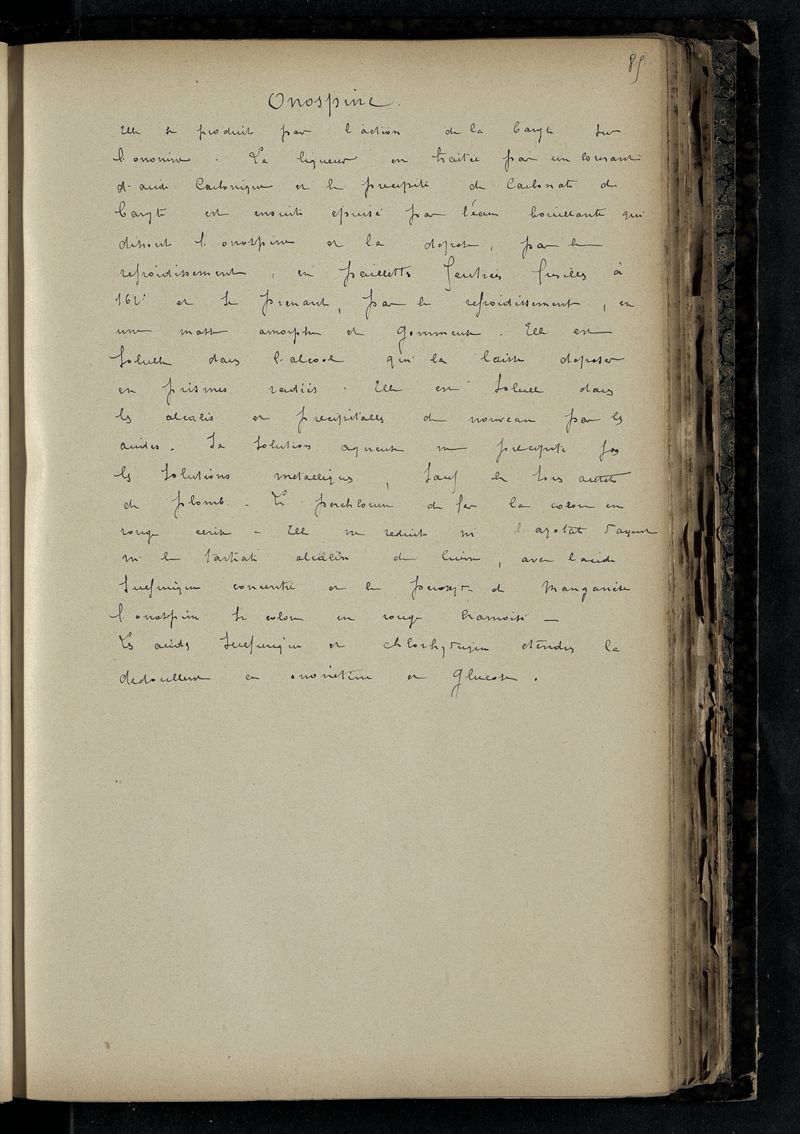 85
Onospine.
Elle se produit par l'action de la baryte sur
l'ononine. La liqueur est traitée par un courant
d'acide Carbonique et le précipité de Carbonate de
baryte est ensuite épuisé par l'eau bouillante qui
dissout l'onospine et la dépose, par le
refroidissement, en paillettes feutrées fusibles à
162° et se prenant, par le refroidissement, en
une masse amorphe et gommeuse. Elle est
soluble dans l'alcool qui la laisse déposer
en prismes radiés. Elle est soluble dans
les alcalis et précipitable de nouveau par les
acides. Sa solution aqueuse ne précipite pas
les solutions métalliques, sauf le sous acétate
de plomb. Le perchlorure de fer la colore en
rouge cerise – Elle ne réduit ni l'azotate d'argent
ni le tartrate alcalin de cuivre, avec l'acide
sulfurique concentré et le peroxyde de Manganèse
l'onospine se colore en rouge cramoisi –
Les acides sulfurique et chlorhydrique étendus la
dédoublent en ononétine et glucose.